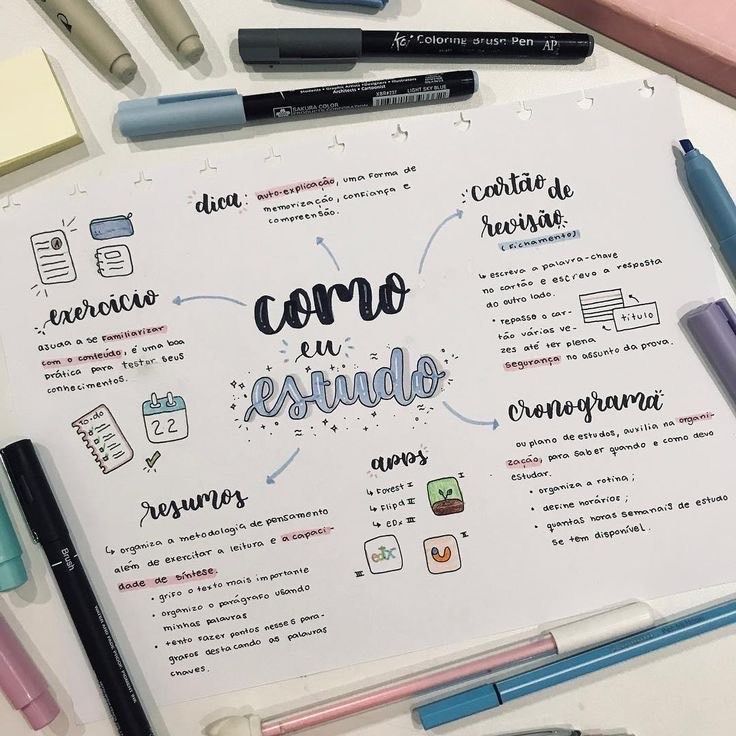 Koi Coloring Brush Pen AP
Students • Graphic Artists • Designers • Illustrators
Architects • Cartoonist
SAKURA COLOR
PRODUCTS CORPORATION
XBR#237 LIGHT SKY BLUE
dica: auto-explicação, uma forma de
memorização, confiança e
compreensão.
cartão de
revisão
(fichamento)
↳ escreva a palavra-chave
no cartão e escrevo a resposta
do outro lado.
• repasso o car-
tão várias ve-
zes até ter plena
segurança no assunto da prova.
título
exercício
ajuda a se familiarizar
com o conteúdo, é uma boa
prática para testar seus
conhecimentos.
como
eu
estudo
to-do
22
cronograma
ou plano de estudos, auxilia na organi-
zação, para saber quando e como devo
estudar.
• organiza a rotina;
• define horários;
• quantas horas semanais de estudo
se tem disponível.
apps
↳ Forest I
↳ Flipd II
↳ eDx III
I
edX
III
II
resumos
↳ organiza a metodologia de pensamento
além de exercitar a leitura e a capaci-
dade de síntese.
• grifo o texto mais importante
• organizo o parágrafo usando
minhas palavras
• tento fazer pontos nesses pará-
grafos destacando as palavras
chaves.
Brush